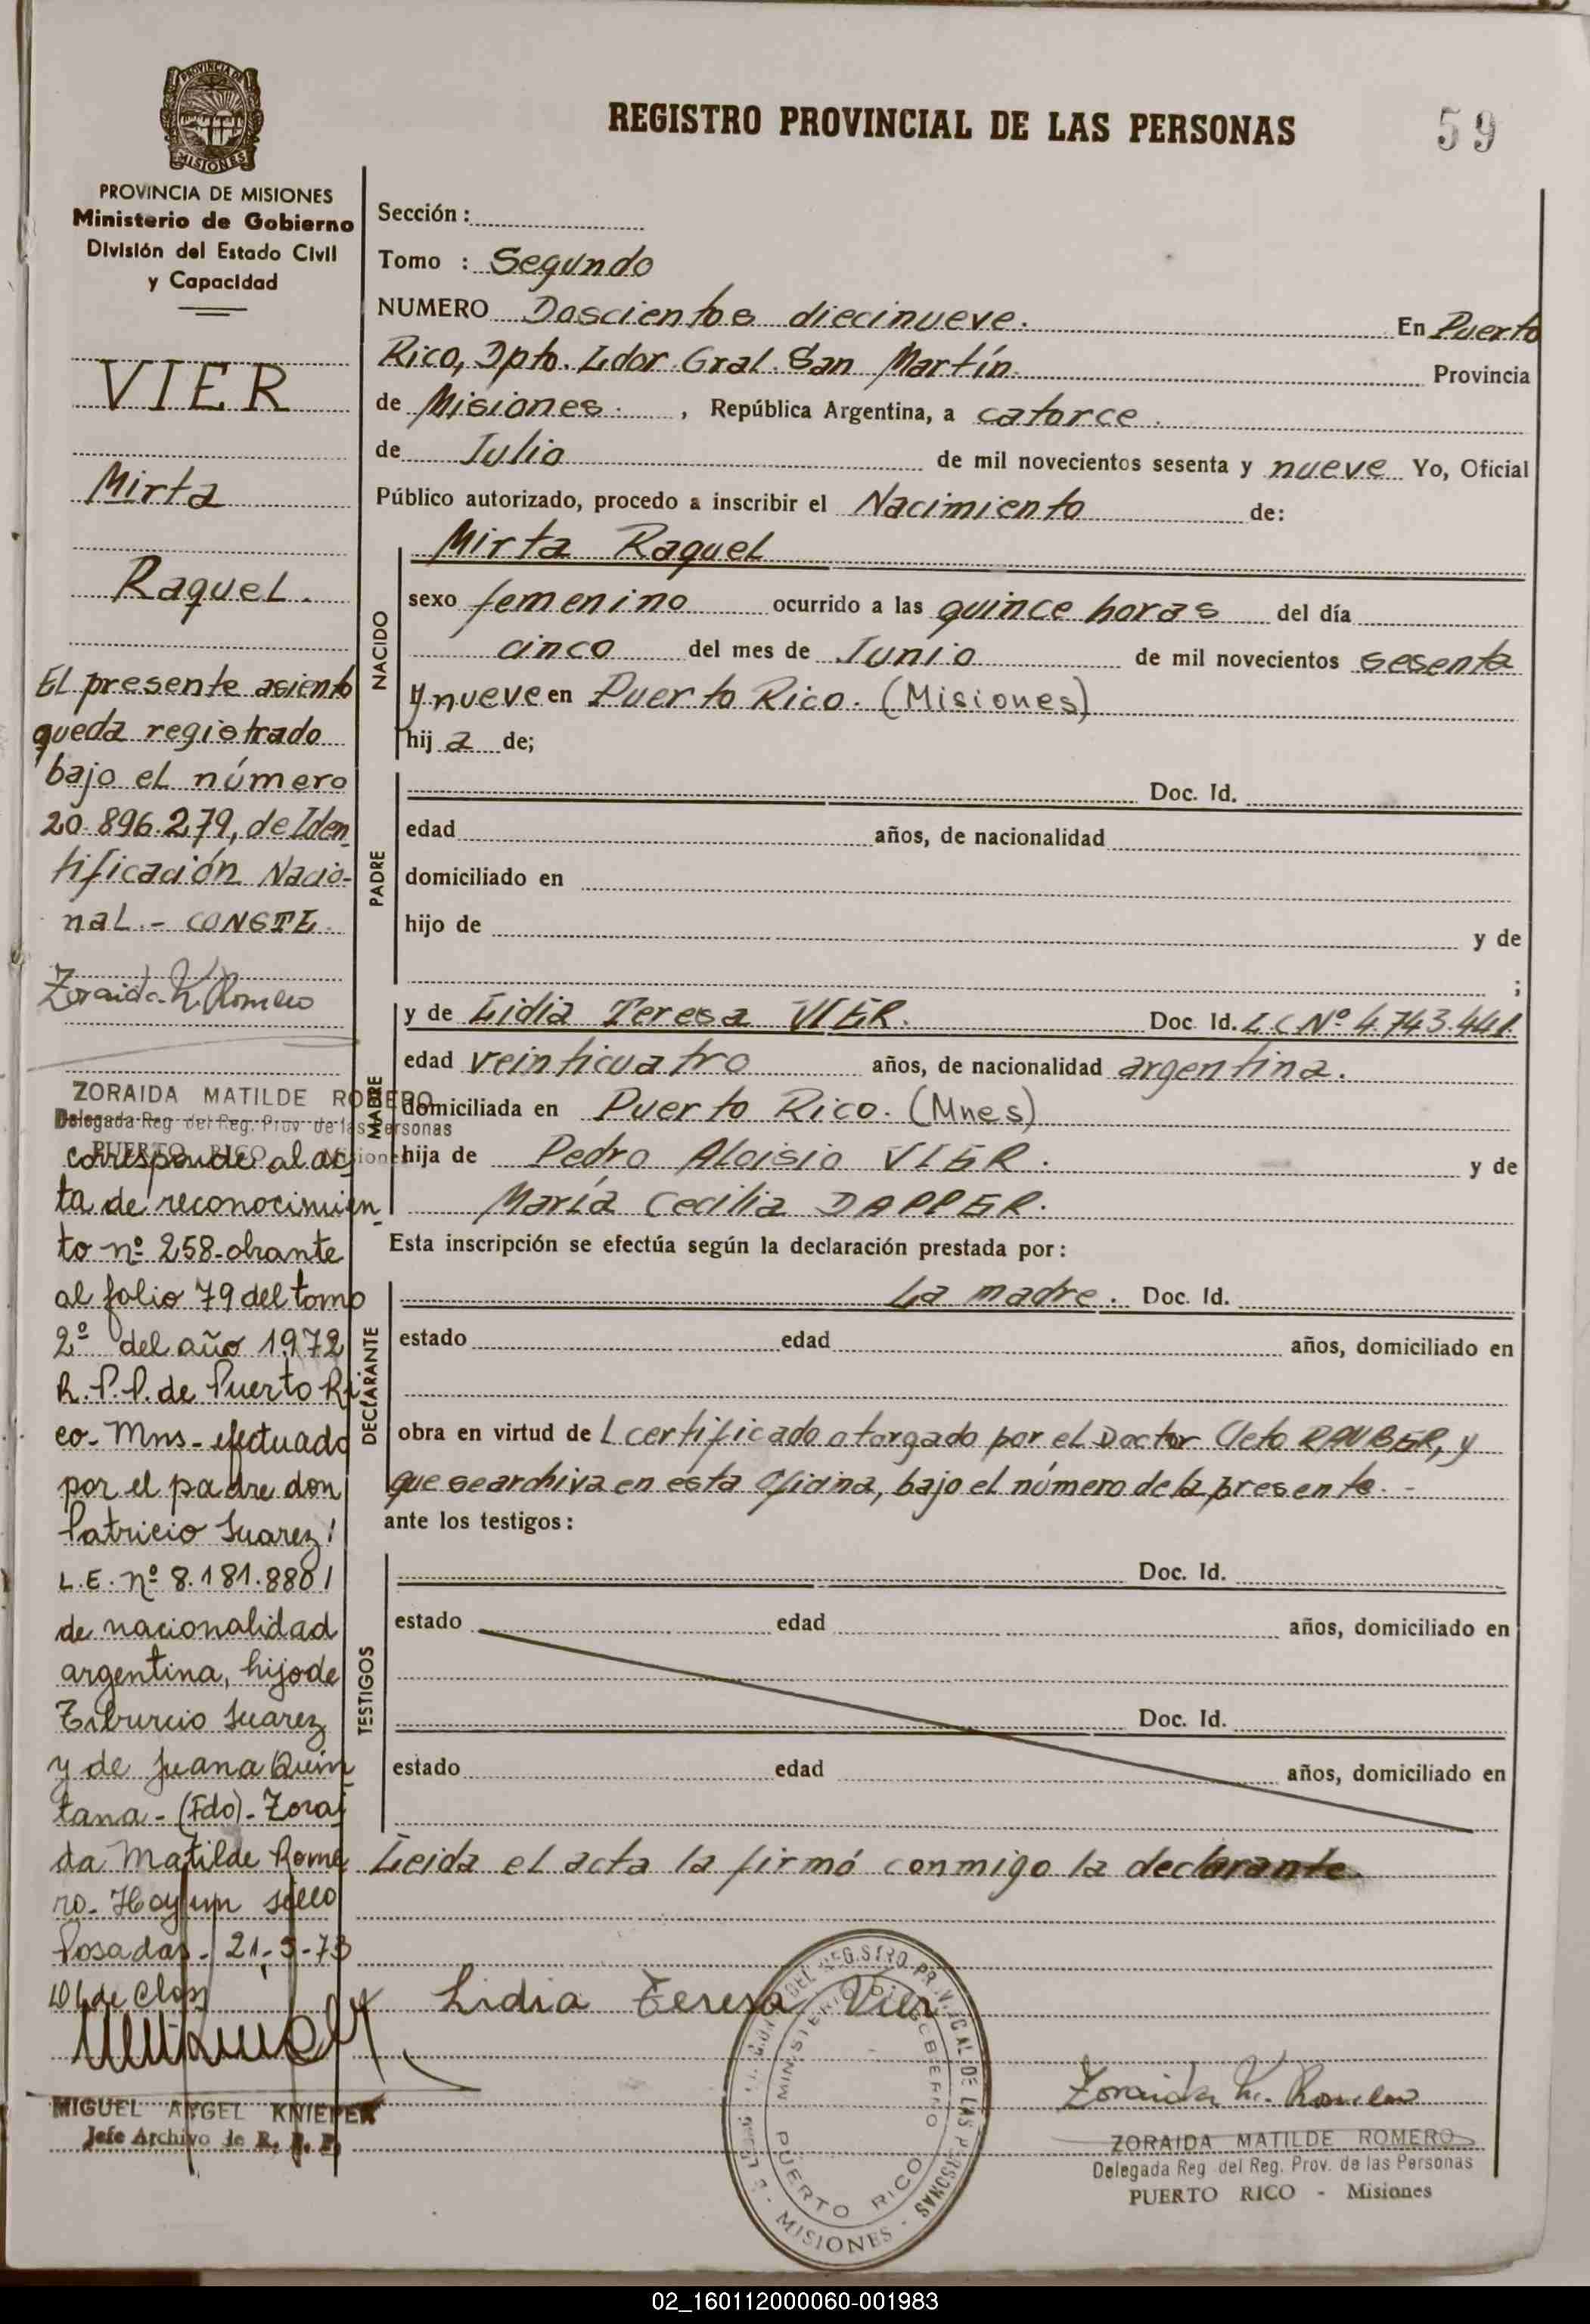 PROVINCIA DE MISIONES
REGISTRO PROVINCIAL DE LAS PERSONAS
59
PROVINCIA DE MISIONES
Ministerio de Gobierno
División del Estado Civil
y Capacidad
VIER
Mirta
Raquel.
El presente asiento
queda registrado
bajo el número
20.896.279, de Iden
tificación Nacio-
nal.- CONSTE.
Zoraida M. Romero
ZORAIDA MATILDE ROMERO
Delegada Reg del Reg. Prov de las Personas
PUERTO RICO - Misiones
corresponde al ac
ta de reconocimien
to nº 258-obrante
al folio 79 del tomo
2º del año 1972
R.P.P. de Puerto Ri
co-Mns-efectuado
por el padre don
Patricio Suarez
L.E. nº 8.181.880
de nacionalidad
argentina, hijo de
Tiburcio Suarez
y de Juana Quin
tana-(Fdo)-Zorai
da Matilde Rome
ro. Hay un sello
Posadas-21-5-73
MIGUEL ANGEL KNIEPER
Jefe Archivo de R. P. P.
Sección:
Tomo : Segundo
NUMERO Doscientos diecinueve. En Puerto
Rico, Dpto. Ldor. Gral. San Martín. Provincia
de Misiones. , República Argentina, a catorce.
de Julio de mil novecientos sesenta y nueve Yo, Oficial
Público autorizado, procedo a inscribir el Nacimiento de:
NACIDO
Mirta Raquel
sexo femenino ocurrido a las quince horas del día
cinco del mes de Junio de mil novecientos sesenta
y nueve en Puerto Rico. (Misiones)
hij a de;
PADRE
Doc. Id.
edad años, de nacionalidad
domiciliado en
hijo de y de
;
MADRE
y de Lidia Teresa VIER. Doc. Id. L.C Nº 4.743.441.
edad veinticuatro años, de nacionalidad argentina.
domiciliada en Puerto Rico. (Mnes)
hija de Pedro Aloisio VIER. y de
María Cecilia DAPPER.
Esta inscripción se efectúa según la declaración prestada por:
DECLARANTE
La madre. Doc. Id.
estado edad años, domiciliado en
obra en virtud de l certificado otorgado por el Doctor Cleto RAUBER, y
que se archiva en esta Oficina, bajo el número de la presente.-
ante los testigos:
TESTIGOS
Doc. Id.
estado edad años, domiciliado en
Doc. Id.
estado edad años, domiciliado en
Leida el acta la firmó conmigo la declarante.
Lidia Teresa Vier
DEL REGISTRO PROVINCIAL DE LAS PERSONAS
MINISTERIO DE GOBIERNO
PUERTO RICO
- MISIONES -
Zoraida M. Romero
ZORAIDA MATILDE ROMERO
Delegada Reg del Reg. Prov. de las Personas
PUERTO RICO - Misiones
02_160112000060-001983